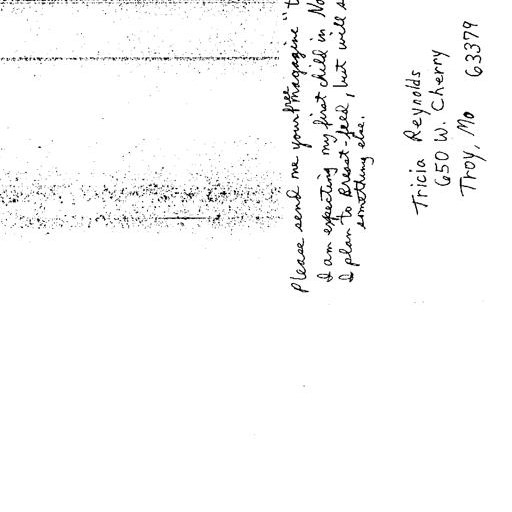 Please send me your free magazine "t
I am expecting my first child in No
I plan to Breast-feed, but will s
something else.
Tricia Reynolds
650 W. Cherry
Troy, Mo 63379